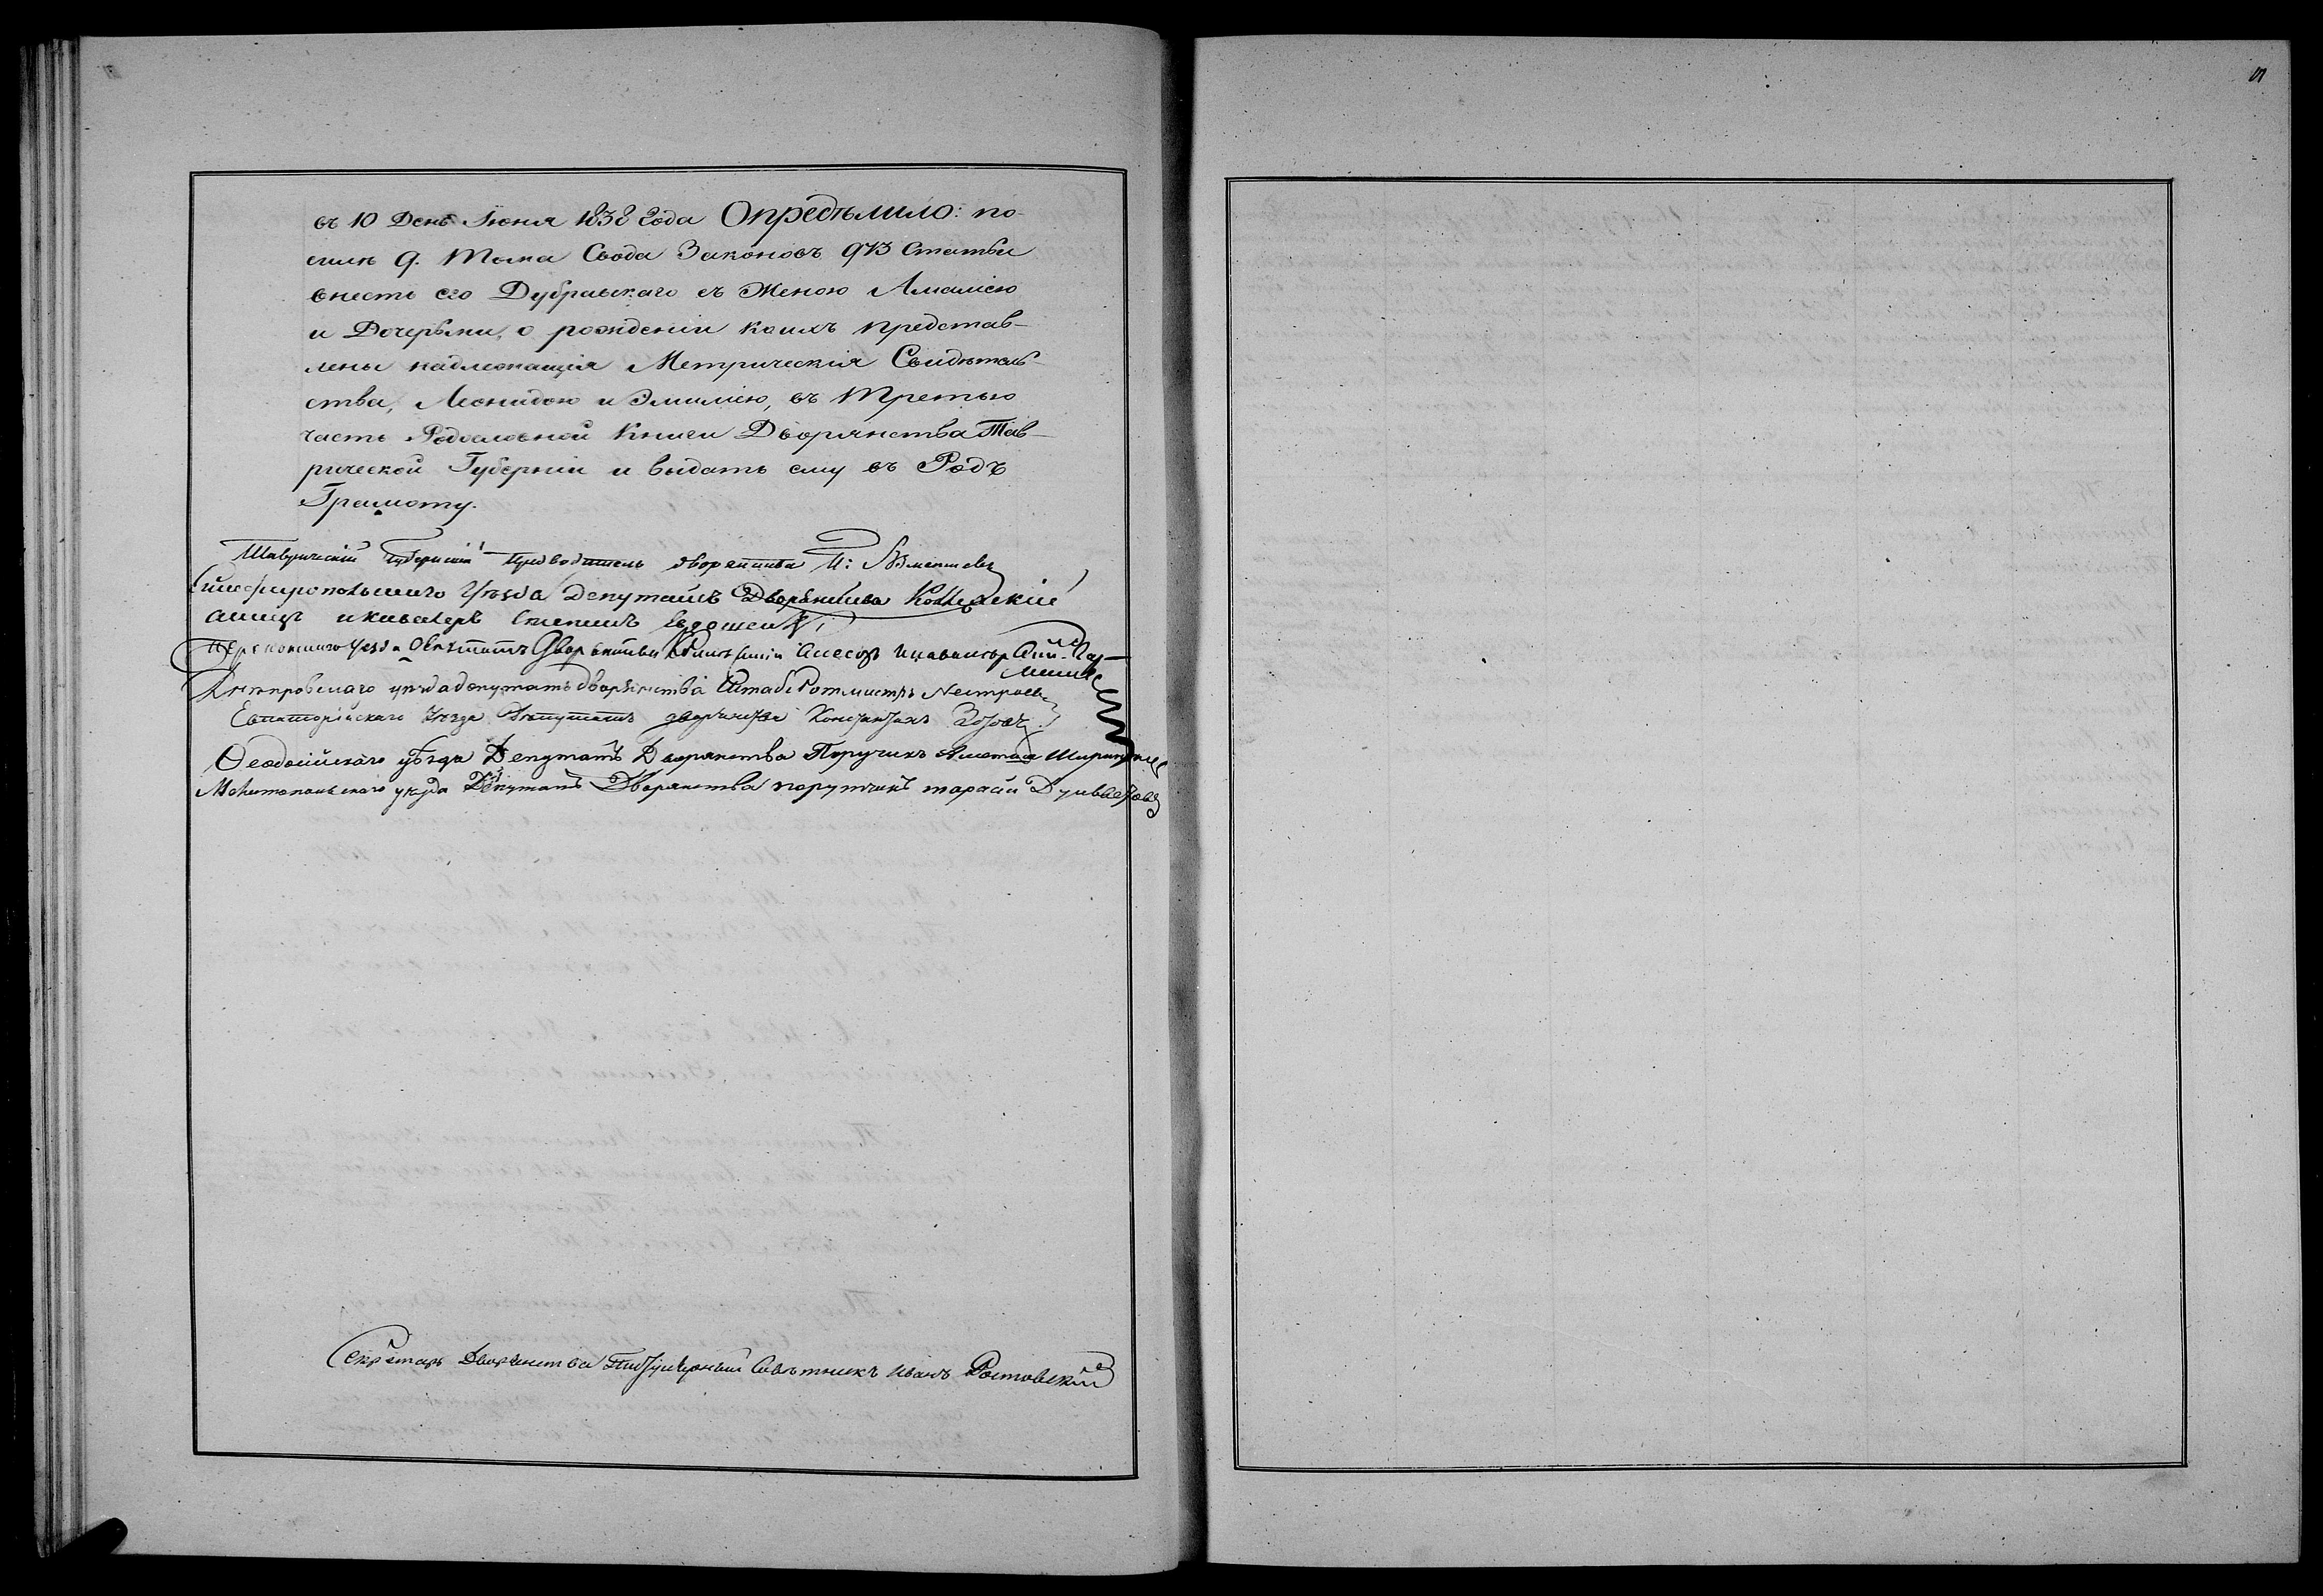 въ 10 День Июня 1838 Года Опредѣлило: по
силѣ 9. Тома Свода Законовъ 973 Статьи
внесть его Дубравскаго съ Женою Амаліею
и Дочерьми, о рожденіи коихъ представ-
лены надлежащія Метрическія Свидѣтель-
ства, Леонидою и Эмиліею, въ Третью
часть Родословной Книги Дворянства Тав-
рической Губерніи и выдать ему въ Родъ
Грамоту.
Таврическій Губернскій Предводитель дворянства
Симферопольскаго Уѣзда Депутатъ Дворянства Коллежскій
и кавалеръ
Перекопскаго Уезда Депутатъ Дворянства
Днѣпровскаго уѣзда депутатъ дворянства Штабс Ротмистръ Нестроевъ
Евпаторійскаго Уезда Депутатъ дворянства
Ѳеодосійскаго уѣзда Депутатъ Дворянства Поручикъ
Мелитопольскаго уезда Депутатъ Дворянства порутчикъ тарасъ
Секретарь Дворянства Титулярный Совѣтникъ Иванъ Ростовскій